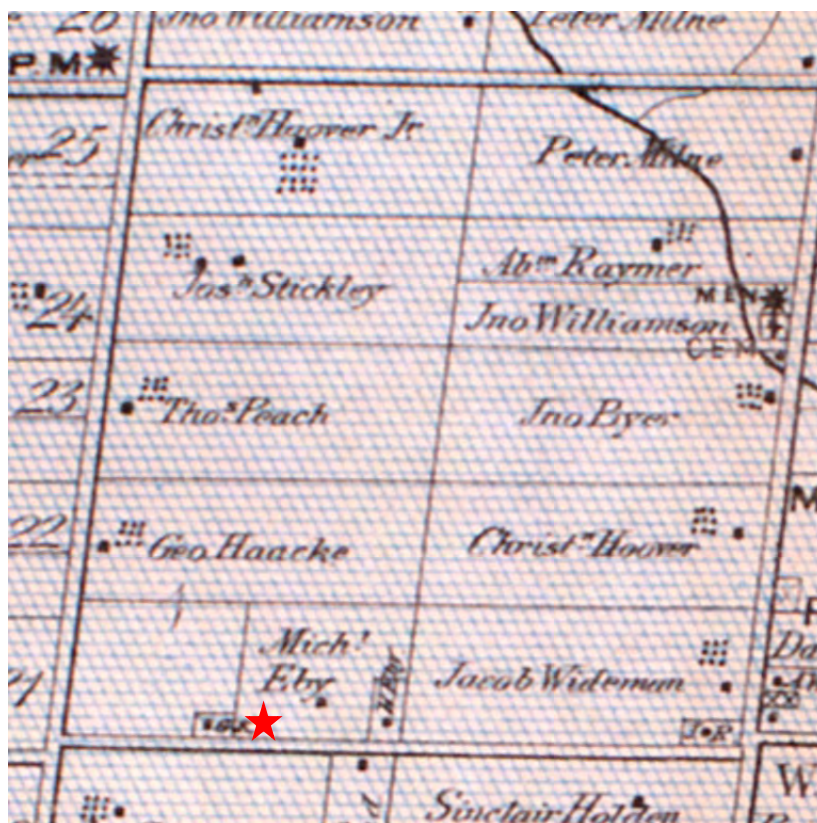 26
Jno Williamson
Peter Milne
P.M
25
Christn Hoover Jr
Peter Milne
Josh Stickley
Abm Raymer
MEN
24
Jno Williamson
CEM
23
Thos Peach
Jno Byer
M
22
Geo Haacke
Christn Hoover
Michl
Eby
Jacob Wideman
Da
J R
W
Sinclair Holden